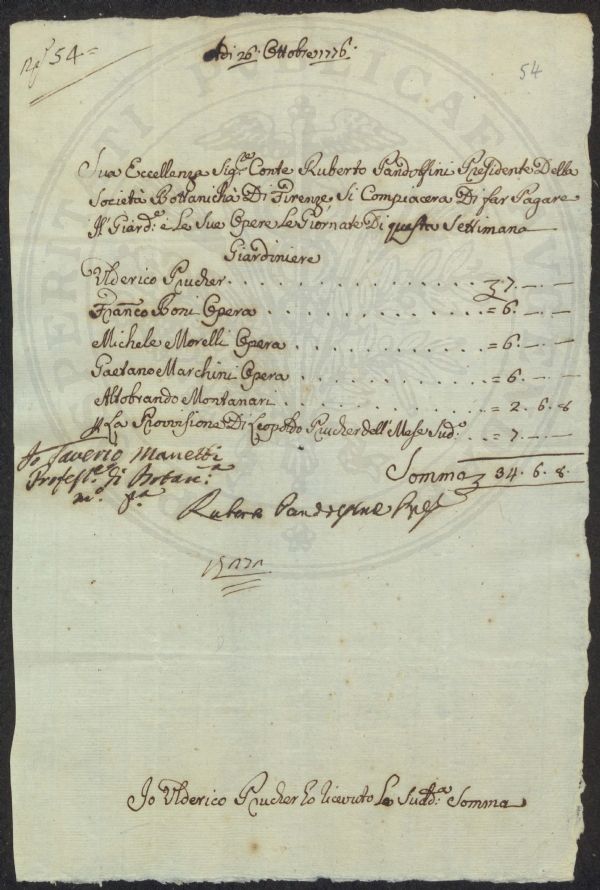 54
Adi 26. Ottobre 1776.
54
Sua Eccellenza Sig.re Conte Ruberto Pandolfini Presidente Della
Società Bottanicha Di Firenze, Si Compiacera Di far Pagare
Il Giard.e e Le Sue Opere Le Giornate Di questa Settimana
Giardiniere
Ulderico Prucher . . . . . . . . . . . . £ 7. — —
Franco Boni Opera . . . . . . . . . . . = 6. — —
Michele Morelli Opera . . . . . . . . . = 6. — —
Gaetano Marchini Opera . . . . . . . . = 6. — —
Aldobrando Montanari . . . . . . . . . = 2. 6. 8
La Provisione Di Leopoldo Prucher dell'Mese Sud.o . . = 7. — —
Somma £ 34. 6. 8.
Io Saverio Manetti
Profess.e di Botan.a
m.o p.a
Ruberto Pandolfini Pres.
Io Ulderico Prucher ho ricevuto La Sudd.a Somma